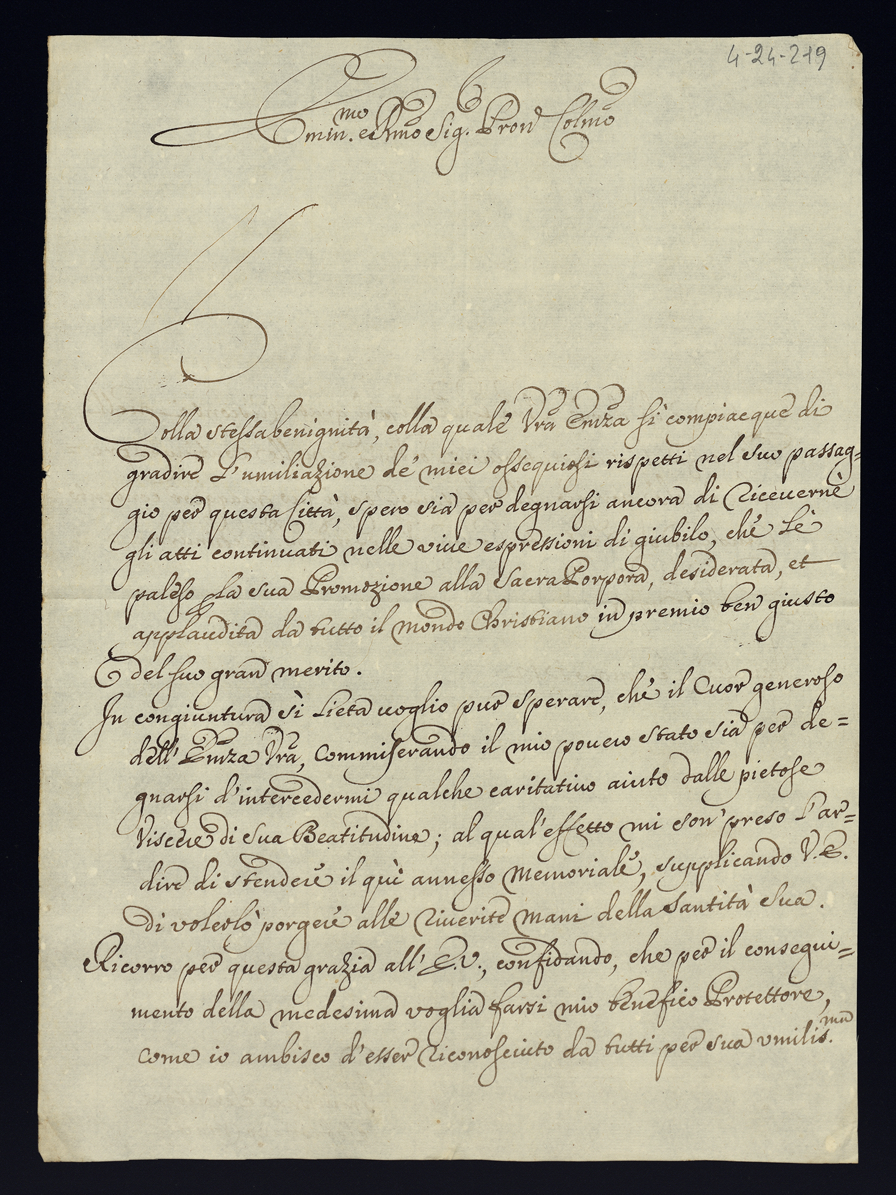 4-24-219
Emin.mo e Rmo Sig. Pron Colmo
Colla stessa benignità, colla quale Vra Emza si compiacque di
gradire l'umiliazione de' miei ossequiosi rispetti nel suo passag=
gio per questa Città, spero sia per degnarsi ancora di riceverne
gli atti continuati nelle vive espressioni di giubilo, che Le
paleso p la sua Promozione alla Sacra Porpora, desiderata, et
applaudita da tutto il mondo Christiano in premio ben giusto
del suo gran merito.
In congiuntura sì lieta voglio pur sperare, che il Cuor generoso
dell'Emza Vra, commiserando il mio povero stato sia per de=
gnarsi d'intercedermi qualche caritativo aiuto dalle pietose
Viscere di Sua Beatitudine; al qual'effetto mi son' preso l'ar=
dire di stendere il quì annesso Memoriale, supplicando V.E.
di volerlo porgere alle riverite mani della Santità Sua.
Ricorro per questa grazia all'E.V., confidando, che per il consegui=
mento della medesima voglia farsi mio benefico Protettore,
come io ambisco d'esser riconosciuto da tutti per sua umilis.ma